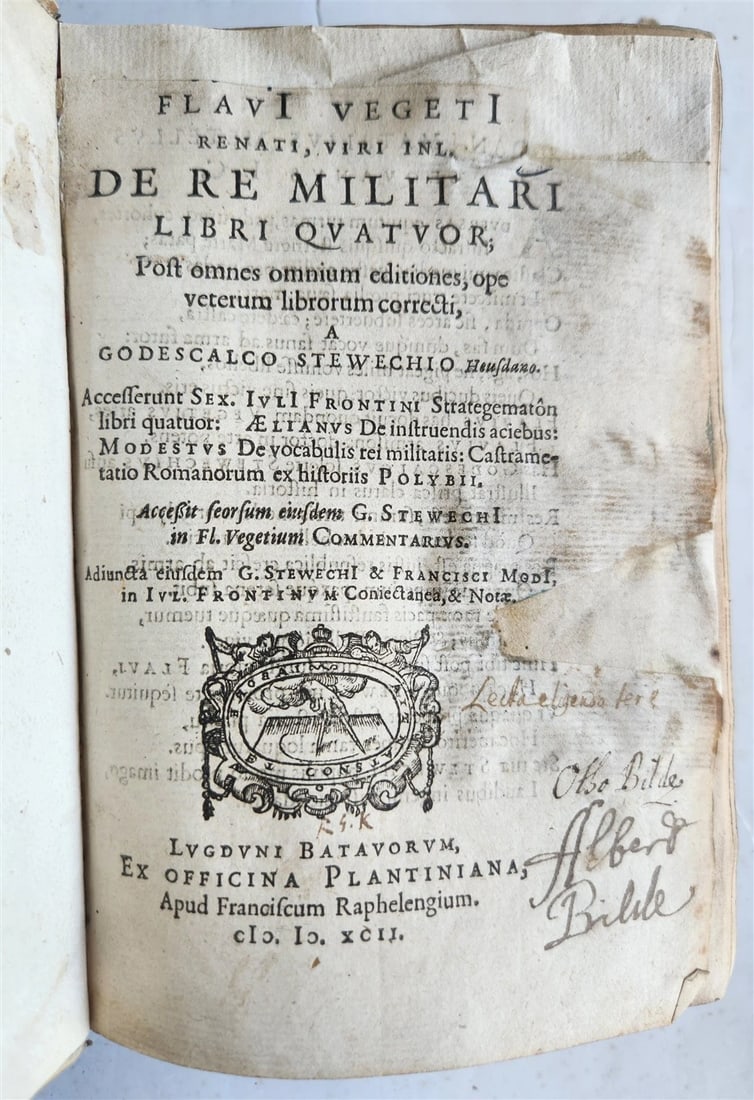 FLAVI VEGETI
RENATI, VIRI INL.
DE RE MILITARI
LIBRI QVATVOR;
Poſt omnes omnium editiones, ope
veterum librorum correcti,
A
GODESCALCO STEWECHIO Heuſdano.
Acceſſerunt SEX. IVLI FRONTINI Strategematôn
libri quatuor: ÆLIANVS De inſtruendis aciebus:
MODESTVS De vocabulis rei militaris: Caſtrame-
tatio Romanorum ex hiſtoriis POLYBII.
Acceßit ſeorſum eiuſdem G. STEWECHI
in Fl. Vegetium COMMENTARIVS.
Adiuncta eiuſdem G. STEWECHI & FRANCISCI MODI,
in IVL. FRONTINVM Coniectanea, & Notæ.
LABORE ET CONSTANTIA
Otho Bilde
R G. K
Albert
Bilde
LVGDVNI BATAVORVM,
EX OFFICINA PLANTINIANA,
Apud Franciſcum Raphelengium.
cIↄ. Iↄ. XCII.